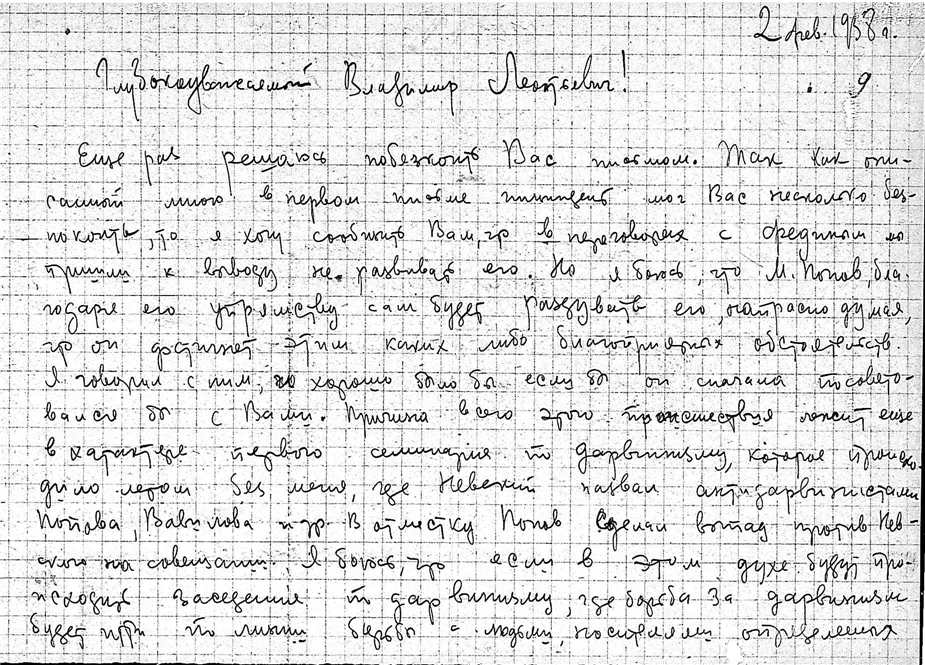 2 фев. 1938 г.
9
Глубокоуважаемый Владимир Леонтьевич!
Еще раз решаюсь побезкоить Вас письмом. Так как опи-
санный мною в первом письме инцидент мог Вас несколько без-
покоить, то я хочу сообщить Вам, что в переговорах с Фединым мы
пришли к выводу не развивать его. Но я боюсь, что М. Попов, бла-
годаря его упрямству сам будет раздувать его, напрасно думая,
что он достигнет этим каких либо благоприятных обстоятельств.
Я говорил с ним, но хорошо было бы если бы он сначала посовето-
вался бы с Вами. Причина всего этого происшествия лежит еще
в характере первого семинария по дарвинизму, которое происхо-
дило летом без меня, где Невский назвал антидарвинистами
Попова, Вавилова и др. В отместку Попов сделал выпад против Нев-
ского на совещании. Я боюсь, что если в этом духе будут про-
исходить заседения по дарвинизму, где борьба за дарвинизм
будет идти по линии борьбы с людьми, носителями определеных